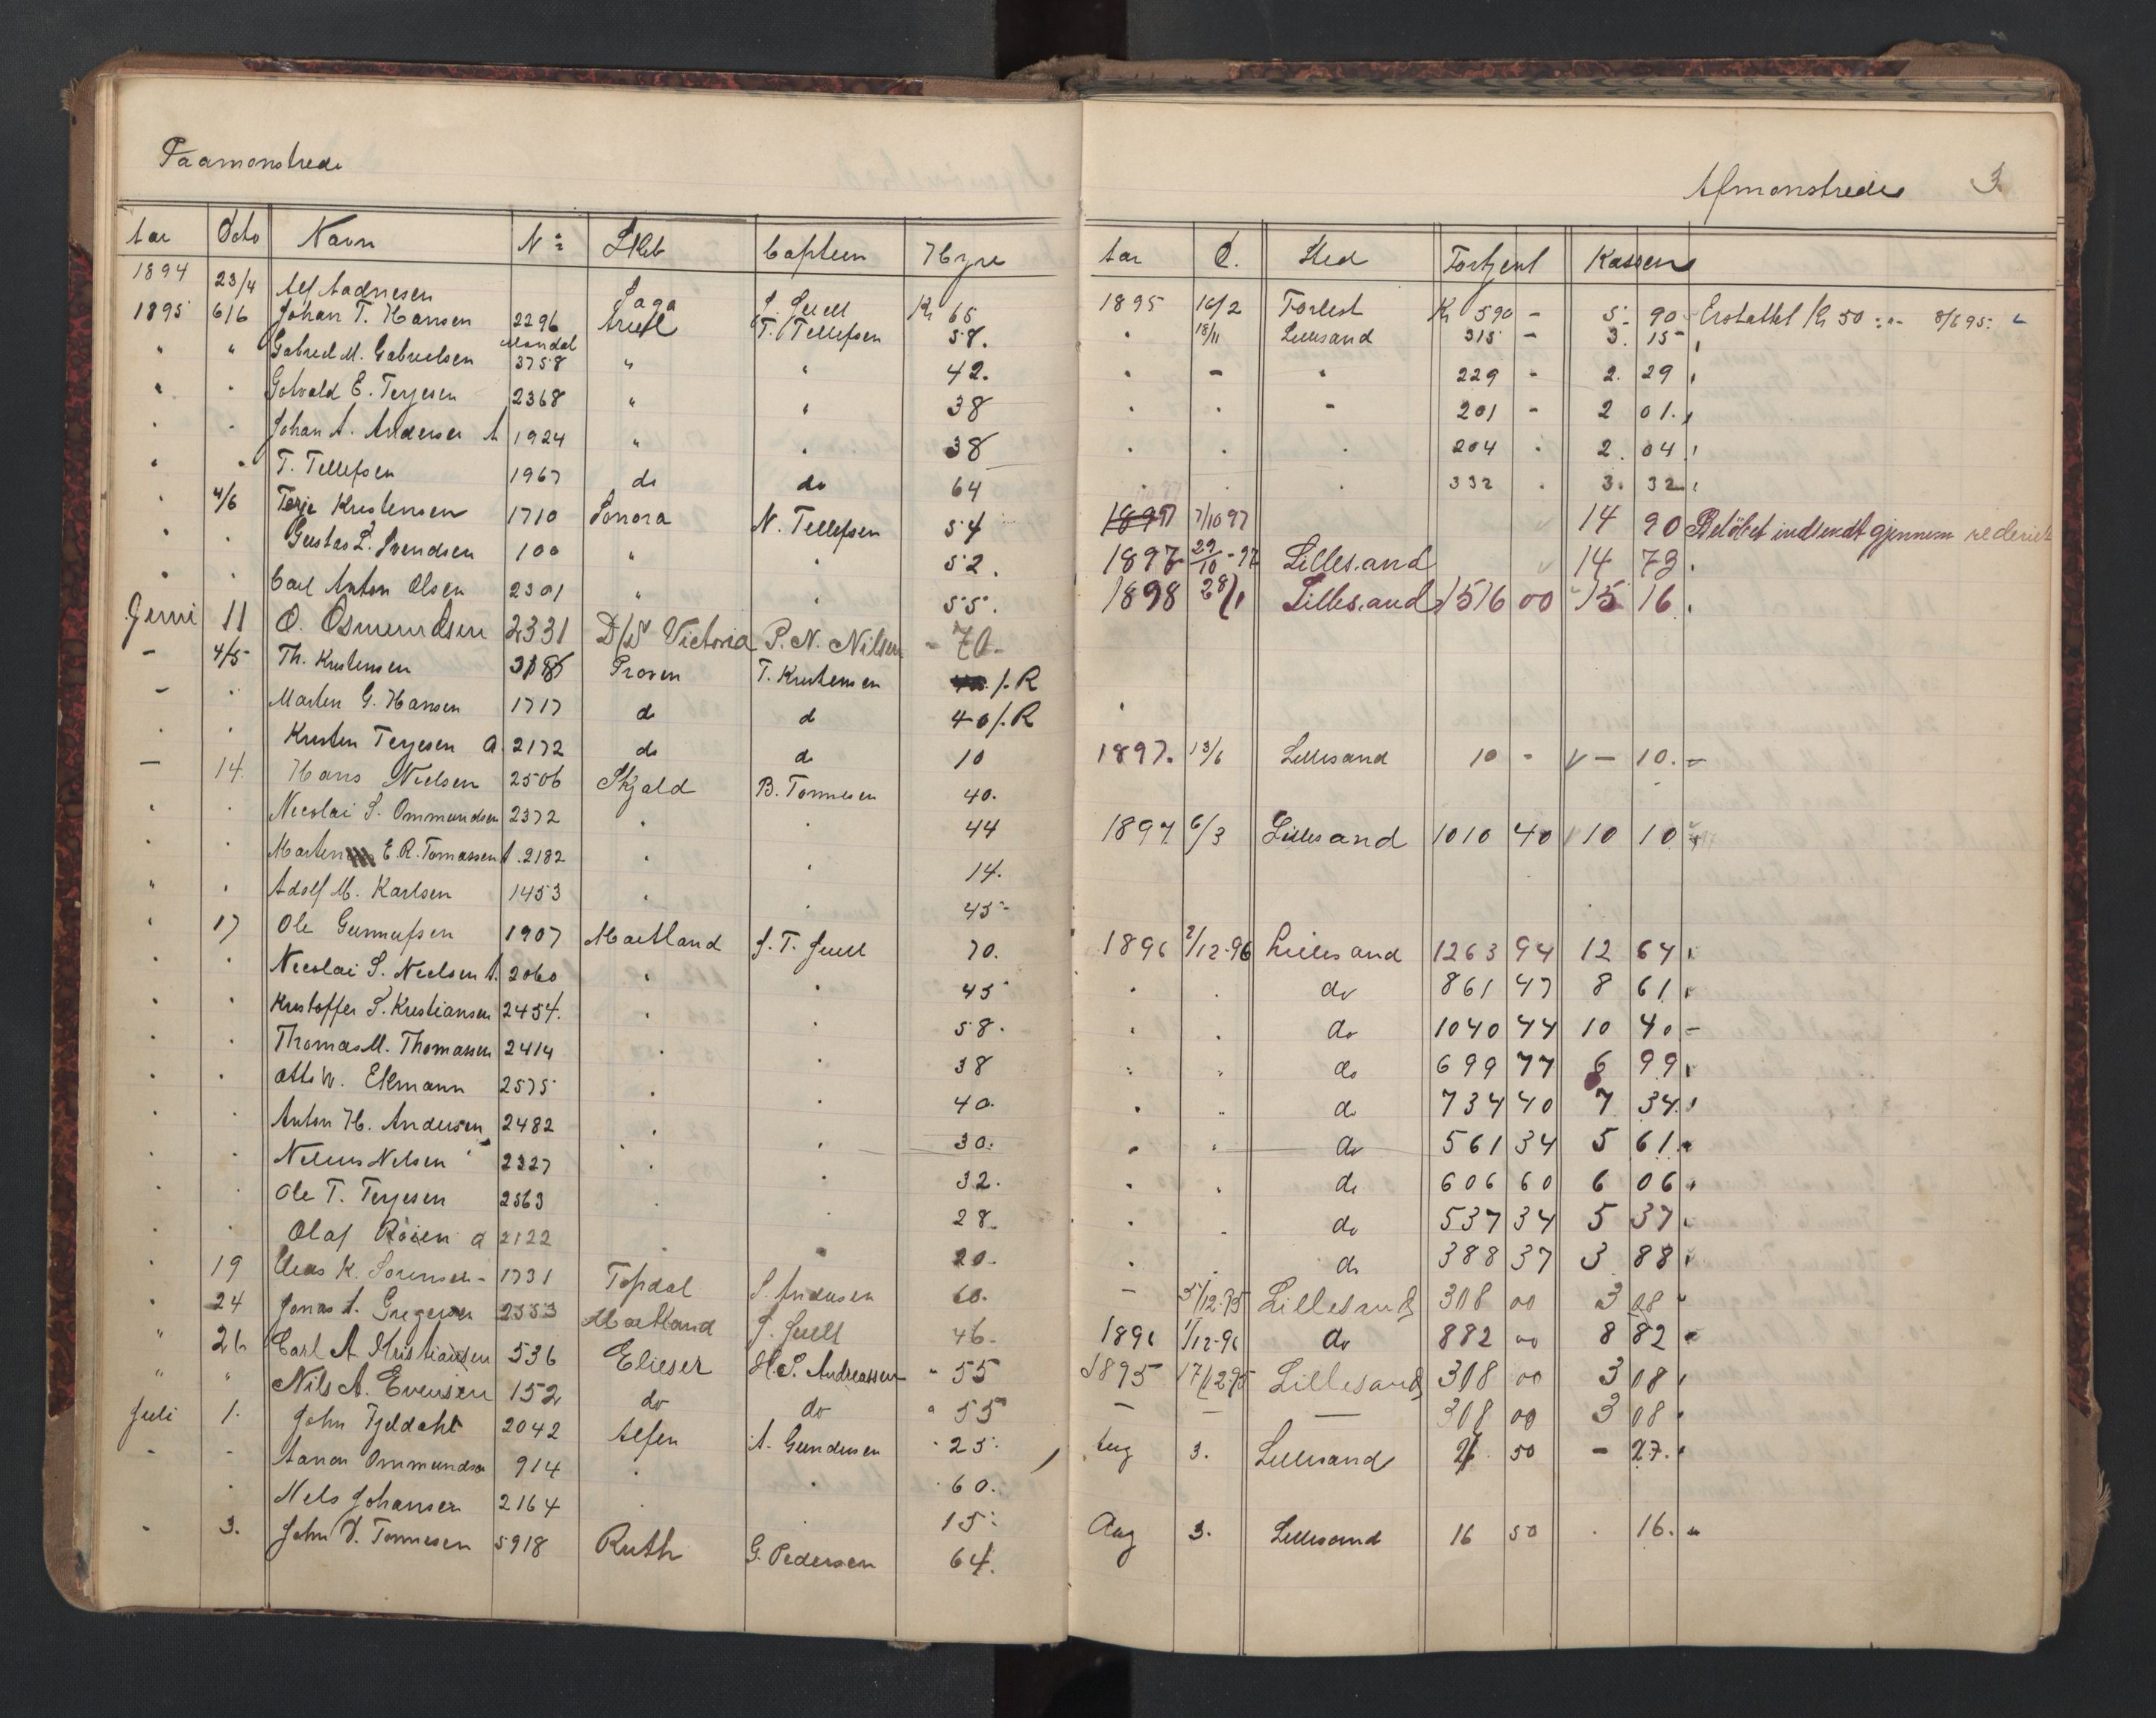 Paamonstrede
Afmonstrede 3
Aar Dato Navn No Skib Captein Hyre
Aar D. Sted Fortjent Kassen
1894 23/4 Alf Aadnesen Saga J. Juell Kr 65 1895 16/2 Forlist Kr 590 - 5. 90 Erstattet Kr 50 8/6 95
1895 6/6 Johan T. Hansen 2296 Ariel T. Tellefsen 58. " 18/11 Lillesand 315 - 3. 15
" " Gabriel M. Gabrielsen Mandal 3758 " " 42. " - " 229 - 2. 29
" " Gotvald E. Terjesen 2368 " " 38 " " - 201 - 2 01.
" " Johan A. Andersen A 1924 " " 38 " " " 204 " 2. 04
" " T. Tellefsen 1967 do do 64 " " " 332 . 3. 32
" 4/6 Terje Kristensen 1710 Sonora N. Tellefsen 54 1897 7/10 97 14 90 Beløbet indsendt gjennem rederiet
" " Gustav L. Svendsen 100 " " 52. 1897 29/10-97 Lillesand 14 73.
" " Carl Anton Olsen 2301 " " 55. 1898 28/1 Lillesand 1516 00 15 16.
Juni 11 O. Osmundsen 2331 D/S Victoria P. N. Nilsen - 70.
- 4/5 Th. Kristensen Proven T. Kristensen /. R
- " Marten G. Hansen 1717 do do 40/. R
" " Kristen Terjesen A. 2172 do do 10 1897. 13/6 Lillesand 10 - - 10. -
- 14. Hans Nielsen 2506 Skjold B. Tønnesen 40.
" " Nicolai S. Ommundsen 2372 " " 44 1897 6/3 Lillesand 1010 40 10 10
" " Marten E. R. Tomassen A. 2182 " " 14.
" " Adolf M. Karlsen 1453 " " 45-
" 17 Ole Gunnufsen 1907 Maitland J. T. Juell 70. 1896 2/12-96 Lillesand 1263 94 12 64
" " Nicolai S. Nielsen A. 2060 " " 45 " " do 861 47 8 61
" " Kristoffer S. Kristiansen 2454. " " 58. " " do 1040 44 10 40 -
" " Thomas M. Thomassen 2414 " " 38 " " do 699 77 6 99
" " Otto W. Ekmann 2575 " " 40. " " do 734 40 7 34.
" " Anton H. Andersen 2482 " " 30. " " do 561 34 5 61.
" " Nelius Nelsen 2327 " " 32. " " do 606 60 6 06
" " Ole T. Terjesen 2563 " " 28. " " do 537 34 5 37
" " Olaf Röien a 2122 " " 20. " " do 388 37 3 88
" 19 K. Sörensen - 1731 Topdal S. Andersen 60. - 5/12-95 Lillesand 308 00 3 08
" 24 Jonas A. Gregersen 2353 Maitland J. Juell 46. 1896 1/12-96 do 882 00 8 82
" 26 Carl A Kristiansen 536 Elieser H. S. Andreassen " 55 1895 17/12-95 Lillesand 308 00 3 08
" " Nils A. Evensen 152 do do " 55 - - - 308 00 3 08
Juli 1. John Fjeldahl 2042 Alfen A. Gundersen " 25. Aug 3. Lillesand 26. 50 - 27.
- - Aanon Ommundsen 914 " " 60.
" Nels Johansen 2164 15. Aug 3. Lillesand 16 50 . 16.
" 3. John D. Tønnesen 5918 Ruth G. Pedersen 64.